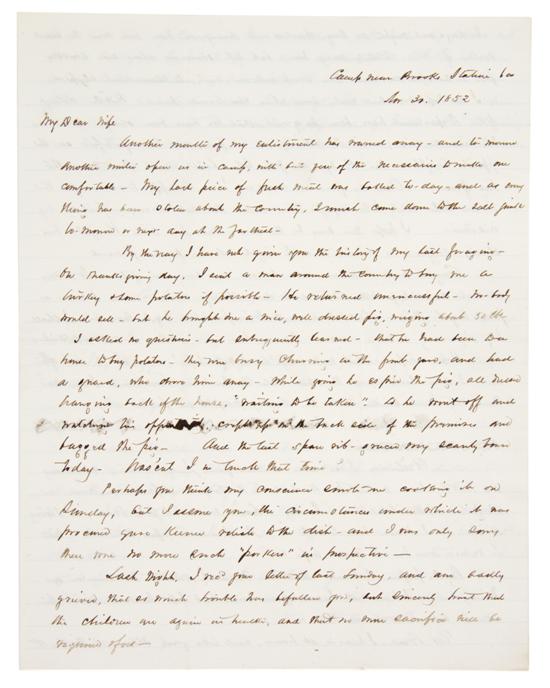 Camp near Brooks Station Va
Nov 30. 1852
My Dear Wife
Another month of my Enlistment has waned away – and to morrow
Another winter opens us in camp, with but few of the necessaries to make one
comfortable – My last piece of fresh meat was boiled to-day – and as every
thing has been stolen about the Country, I must come down to the salt junk
to-morrow or next day at the farthest –
By the way I have not given you the history of my last foraging –
On thanksgiving day, I sent a man around the country to buy me a
turkey & some potatoes if possible – He returned unsuccessful – no-body
would sell – but he brought me a nice, well dressed pig, weighing about 30 lbs
I asked no questions – but subsequently learned – that he had been to a
house to buy potatoes – they were busy Churning in the front yard, and had
a guard, who drove him away – While going he espied the pig, all dressed
hanging back of the house, "waiting to be taken". So he went off and
watching his crept up in the back side of the premises and
bagged the pig – And the last spare rib – graced my scanty board
today – Was'nt I in luck that time?
Perhaps you think my conscience smote me cooking it on
Sunday, but I assure you, the circumstances under which it was
procured gave keener relish to the dish – and I was only sorry
there were no more such "porkers" in prospective –
Last Night, I recd your letter of last Sunday, and am sadly
grieved, that so much trouble has befallen you, but sincerely trust that
the children are again in health, and that no more sacrifice will be
required of us –